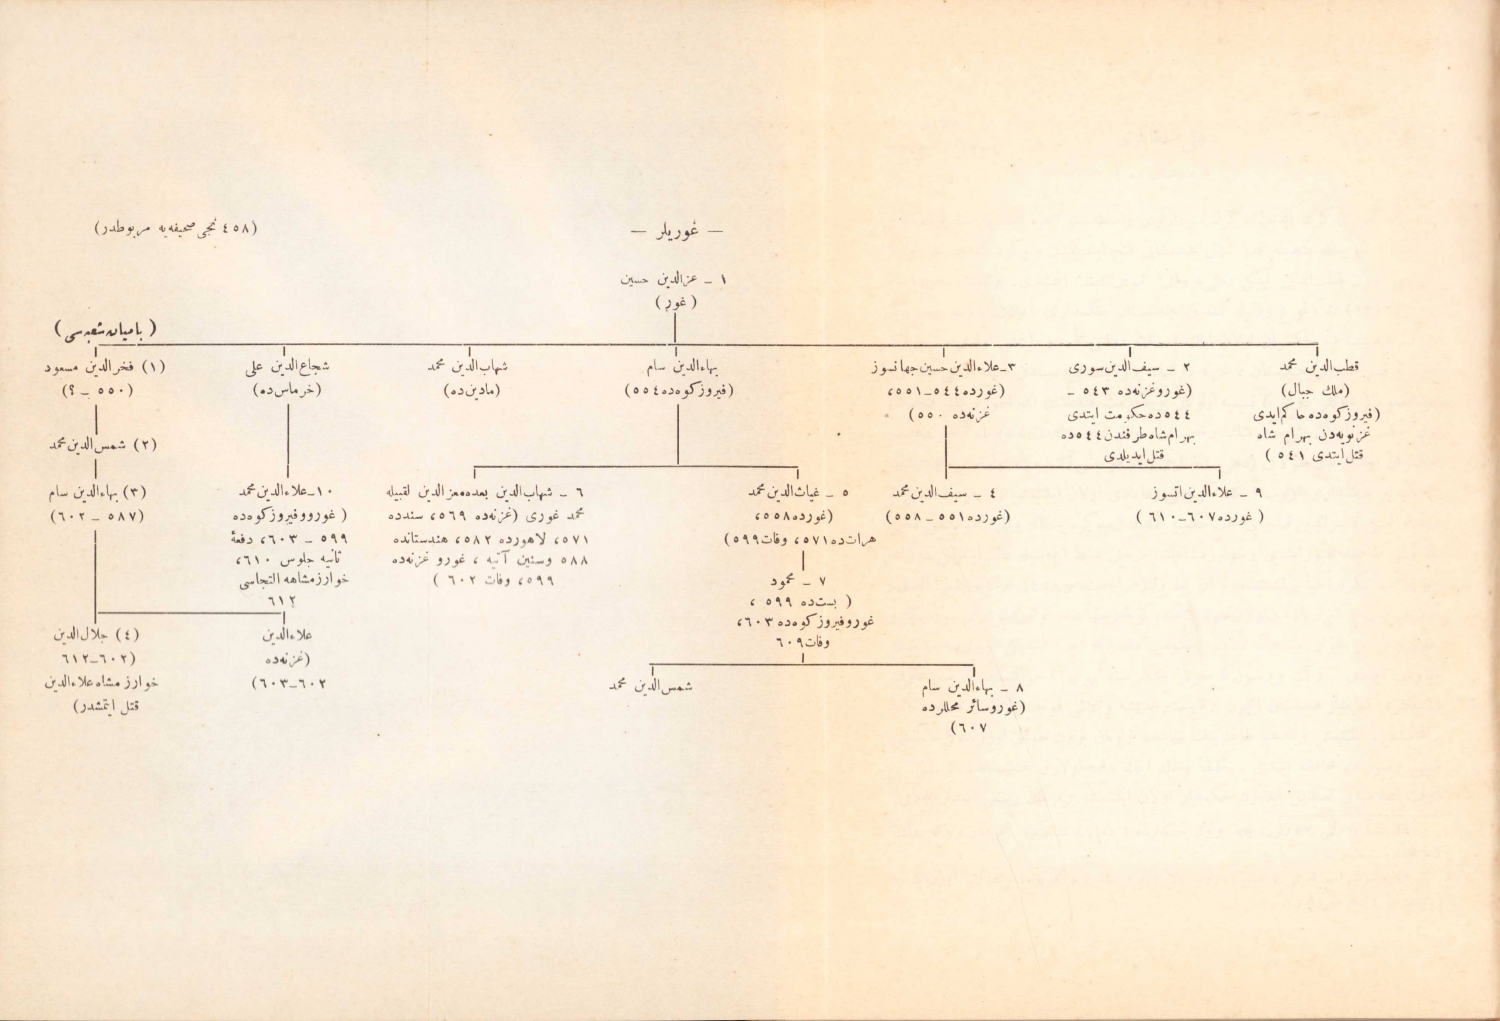 — غوریلر —
(٤٥٨ نجی صحیفه‌یه مربوطدر)
١ ـ عزالدین حسین
(غور)
(بامیان شعبه‌سی)
قطب‌الدین محمد
(ملك جبال)
(فیروزكوه‌ده حاكم ایدی
غزنویه‌دن بهرام شاه
قتل ایتدی ٥٤١)
٢ ـ سیف‌الدین سوری
(غور وغزنه‌ده ٥٤٣ ـ
٥٤٤ ده حكومت ایتدی
بهرام‌شاه طرفندن ٥٤٤ ده
قتل ایدیلدی
٣ـ علاءالدین حسین جهانسوز
(غورده ٥٤٤ـ٥٥١،
غزنه‌ده ٥٥٠)
بهاءالدین سام
(فیروزكوه‌ده ٥٥٤)
شهاب‌الدین محمد
(مادین‌ده)
شجاع‌الدین علی
(خرماس‌ده)
(١) فخرالدین مسعود
(٥٥٠ ـ ؟)
(٢) شمس‌الدین محمد
٩ ـ علاءالدین اتسوز
(غورده ٦٠٧ـ٦١٠)
٤ ـ سیف‌الدین محمد
(غورده ٥٥١ ـ ٥٥٨)
٥ ـ غیاث‌الدین محمد
(غورده ٥٥٨،
هرات‌ده ٥٧١، وفات ٥٩٩)
٦ ـ شهاب‌الدین بعده معزالدین لقبیله
محمد غوری (غزنه‌ده ٥٦٩، سندده
٥٧١، لاهورده ٥٨٢، هندستانده
٥٨٨ وسنین آتیه، غور و غزنه‌ده
٥٩٩، وفات ٦٠٢)
١٠ـ علاءالدین محمد
(غور وفیروزكوه‌ده
٥٩٩ ـ ٦٠٣، دفعهٔ
ثانیه جلوس ٦١٠،
خوارزمشاهه التجاسی
٦١٢
(٣) بهاءالدین سام
(٥٨٧ ـ ٦٠٢)
٧ ـ محمود
(بست‌ده ٥٩٩،
غور وفیروزكوه‌ده ٦٠٣،
وفات ٦٠٩
علاءالدین
(غزنه‌ده
٦٠٢ـ٦٠٣)
(٤) جلال‌الدین
(٦٠٢ـ٦١٢
خوارزمشاه علاءالدین
قتل ایتمشدر)
٨ ـ بهاءالدین سام
(غور وسائر محللرده
٦٠٧)
شمس‌الدین محمد